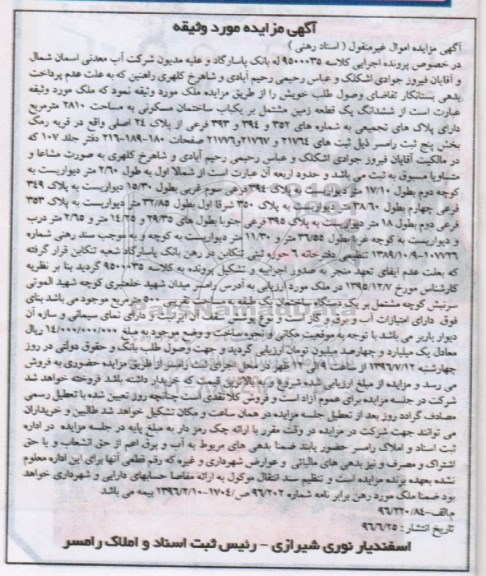 آگهی مزایده مورد وثیقه
آگهی مزایده اموال غیرمنقول ( اسناد رهنی )
در خصوص پرونده اجرایی کلاسه ۹۵۰۰۰۳۵ له بانک پاسارگاد و علیه مدیون شرکت آب معدنی اسمان شمال
و آقایان فیروز جوادی اشکلک و عباس رحیمی رحیم آبادی و شاهرخ کلهری راهنین که به علت عدم پرداخت
بدهی بستانکار تقاضای وصول طلب خویش را از طریق مزایده ملک مورد وثیقه نمود که ملک مورد وثیقه
عبارت است از ششدانگ یک قطعه زمین مشتمل بر یکباب ساختمان مسکونی به مساحت ۲۸۱۰ مترمربع
دارای پلاک های تجمیعی به شماره های ۳۵۲ و ۳۹۴ و ۳۹۳ فرعی از پلاک ۲۴ اصلی واقع در قریه رمک
بخش پنج ثبت رامسر ذیل ثبت های ۲۱۷۶۴ و ۲۱۷۶۷ و ۲۱۷۷۶ صفحات ۱۸۰-۱۸۹-۲۱۶ دفتر جلد ۱۰۷ که
در مالکیت آقایان فیروز جوادی اشکلک و عباس رحیمی رحیم آبادی و شاهرخ کلهری به صورت مشاعا و
متساویا مسبوق به ثبت می باشد و حدود اربعه آن عبارت است از شمالا اول به طول ۲/۶۰ متر دیواریست به
کوچه دوم بطول ۱۷/۱۰ متر دیواریست به پلاک ۳۹۴ فرعی سوم غربی بطول ۱۵/۳۰ دیواریست به پلاک ۳۴۹
فرعی چهارم بطول ۳۸/۶۰ متر دیواریست به پلاک ۳۵۰ شرقا اول بطول ۳۲/۸۵ متر دیواریست به پلاک ۳۵۳
فرعی دوم بطول ۱۸ متر دیواریست به پلاک ۳۹۵ فرعی جنوبا بطول های ۲۹/۳۵ و ۱۴/۲۵ متر و ۲/۶۵ متر درب
و دیواریست به کوچه غربا بطول ۳۶/۵۵ متر و ۱۱/۳۰ متر دیواریست به کوچه که به موجب سند رهنی شماره
۱۰۷۷۳۶-۱۳۸۹/۱۰/۹ تنظیمی دفترخانه ۶ حوزه ثبتی تنکابن در رهن بانک پاسارگاد شعبه تنکابن قرار گرفته
که بعلت عدم ایفای تعهد منجر به صدور اجراییه و تشکیل پرونده به کلاسه ۹۵۱۰۰۳۵ گردید بنا بر نظریه
کارشناس مورخ ۱۳۹۵/۱۲/۷ در ملک مورد ارزیابی به آدرس رامسر میدان شهید خلعتبری کوچه شهید الموتی
سرنبش کوچه مشتمل بر دو دستگاه ساختمان یک طبقه به مساحت تقریبی ۵۰۰ مترمربع موجود می باشد بنای
فوق دارای امتیازات آب و برق و گاز است نوع و دارای نمای سیمانی و سازه آن
دیوار باربر می باشد با توجه به موقعیت مکانی و نحوه ساخت و وضع موجود به مبلغ ۱۴/۰۰۰/۰۰۰/۰۰۰ ریال
معادل یک میلیارد و چهارصد میلیون تومان ارزیابی گردید و جهت وصول طلب بانک و حقوق دولتی در روز
چهارشنبه ۱۳۹۶/۷/۱۲ از ساعت ۹ الی ۱۲ ظهر در محل اجرای ثبت رامسر از طریق مزایده حضوری به فروش
می رسد و مزایده از مبلغ ارزیابی شده شروع و به بالاترین قیمت که خریدار داشته باشد فروخته خواهد شد
شرکت در جلسه مزایده برای عموم آزاد است و فروش کلا نقدی است چنانچه روز تعیین شده با تعطیل رسمی
مصادف گرادد روز بعد از تعطیل جلسه مزایده در همان ساعت و مکان تشکیل خواهد شد طالبین و خریداران
می توانند جهت شرکت در مزایده در وقت مقرر با ارائه چک رمز دار به مبلغ پایه در جلسه مزایده در اداره
ثبت اسناد و املاک رامسر حضور یابند ضمنا بدهی های مربوط به آب و برق اعم از حق انشعاب و یا حق
اشتراک و مصرف و نیز بدهی های مالیاتی و عوارض شهرداری و غیره که رقم قطعی آنها برای این اداره معلوم
نشده بعهده برنده مزایده است و تنظیم سند انتقال موکول به ارائه مفاصا حسابهای دارایی و شهرداری خواهد
بود ضمنا ملک مورد رهن برابر نامه شماره ۹۶/۲۰۲ ص/۱۷۰۴-۱۳۹۶/۲/۱۰ بیمه می باشد
م.الف-۹۶/۲۲۰/۸۴
تاریخ انتشار : ۹۶/۶/۲۵
اسفندیار نوری شیرازی - رئیس ثبت اسناد و املاک رامسر